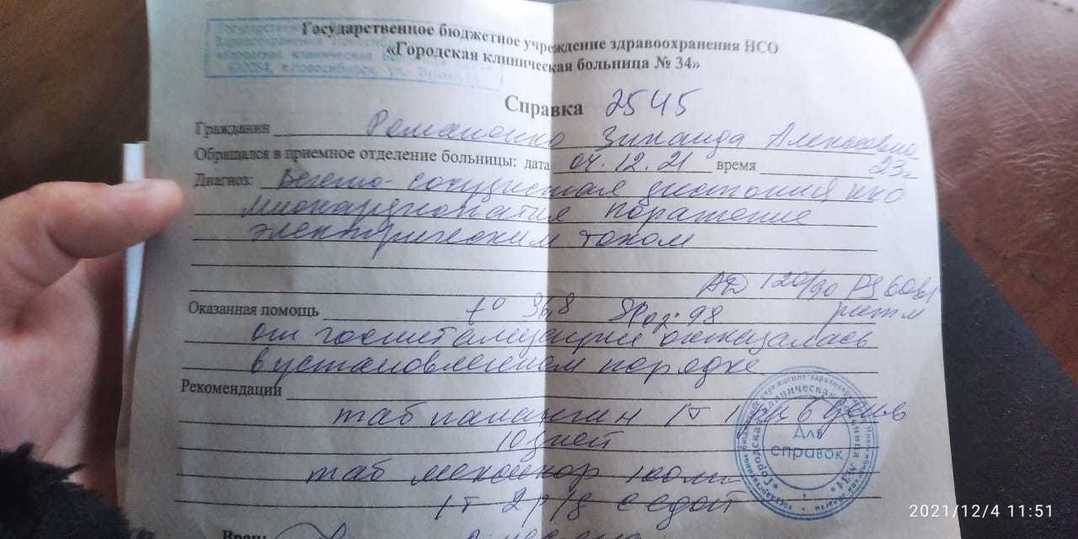 Государственное бюджетное учреждение здравоохранения НСО
«Городская клиническая больница № 34»
Справка 2545
Гражданин Романенко Зинаида
Обращался в приемное отделение больницы: дата 04.12.21 время
Диагноз: Вегето-сосудистая дистония
миокардиопатия поражение
электрическим током
АД 120/90 PS 60
Оказанная помощь t° 36,8 SPO2: 98 ритм
от госпитализации отказалась
в установленном порядке
Рекомендации
таб панангин 1т
10 дней
таб
1т 2 р/д с едой
Для
справок
Врач:
2021/12/4 11:51